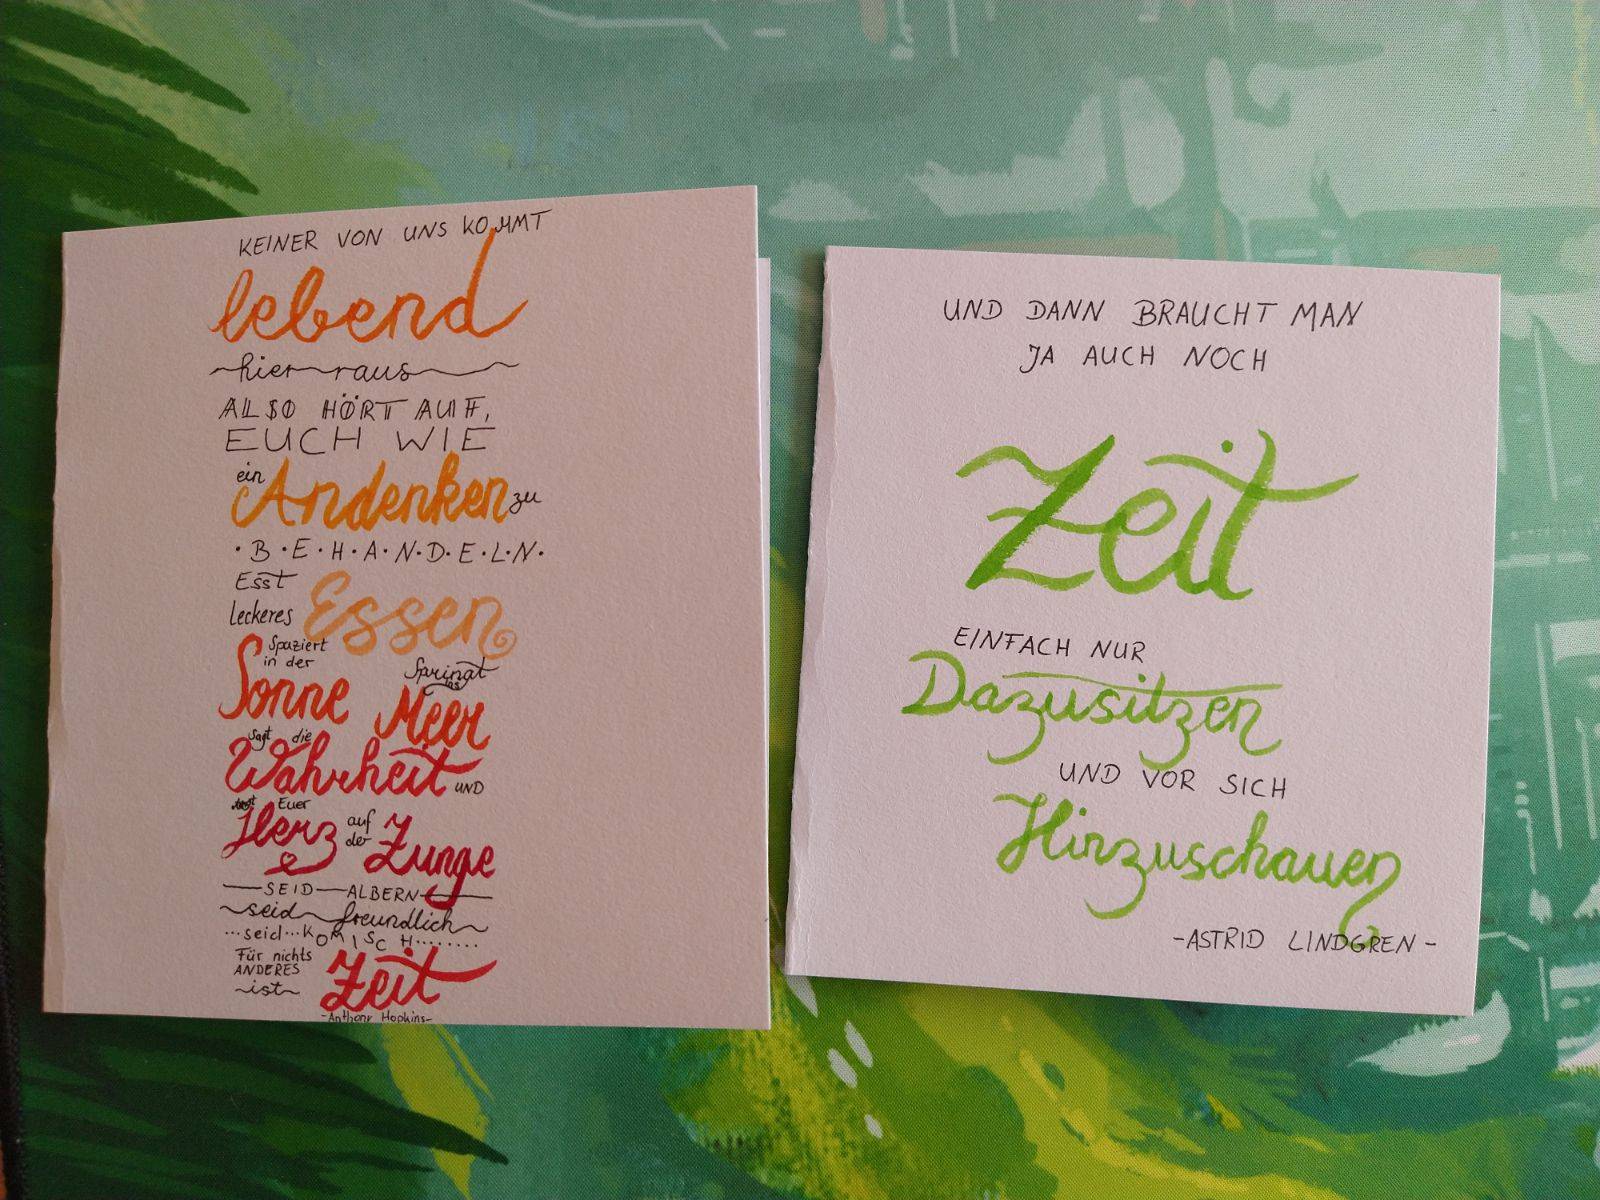 KEINER VON UNS KOMMT
lebend
hier raus
ALSO HÖRT AUF,
EUCH WIE
ein Andenken zu
· B · E · H · A · N · D · E · L · N ·
Esst
leckeres Essen
Spaziert
in der
Sonne
Springt
ins
Meer
sagt die
Wahrheit UND
tragt Euer
Herz auf
der Zunge
SEID ALBERN
seid freundlich
...seid...KOMISCH........
Für nichts
ANDERES
ist Zeit
-Anthony Hopkins-
UND DANN BRAUCHT MAN
JA AUCH NOCH
Zeit
EINFACH NUR
Dazusitzen
UND VOR SICH
Hinzuschauen
-ASTRID LINDGREN-